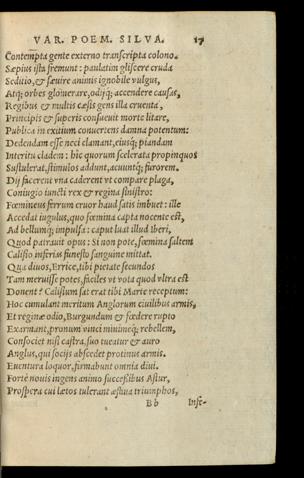 VAR. POEM. SILVA. 17
Contempta gente externo transcripta colono.
Sæpius ista fremunt: paulatim gliscere cruda
Seditio, & sæuire animis ignobile vulgus,
Atq; orbes glomerare, odijq; accendere causas,
Regibus & multis cæsis gens illa cruenta,
Principis & superis consueuit morte litare,
Publica in exitium conuertens damna potentum:
Dedendam esse neci clamant, eiusq; piandam
Interitu cladem: hîc quorum scelerata propinquos
Sustulerat, stimulos addunt, acuuntq; furorem.
Dij facerent vna caderent vt compare plaga,
Coniugio iuncti rex & regina sinistro:
Fœmineus ferrum cruor haud satis imbuet: ille
Accedat iugulus, quo fœmina capta nocente est,
Ad bellumq; impulsa: caput luat illud Iberi,
Quod patrauit opus: Si non pote, fœmina saltem
Calisio inferias funesto sanguine mittat.
Qua diuos, Errice, tibi pietate secundos
Tam meruisse potes, faciles vt vota quod vltra est
Donent? Calisium sat erat tibi Marte receptum:
Hoc cumulant meritum Anglorum ciuilibus armis,
Et reginæ odio, Burgundum & fœdere rupto
Exarmant, pronum vinci minimeq; rebellem,
Consociet nisi castra. suo tueatur & auro
Anglus, qui socijs abscedet protinus armis.
Euentura loquor, firmabunt omnia diui.
Fortè nouis ingens animo successibus Astur,
Prospera cui lætos tulerant æstiua triumphos,
Bb Inse-